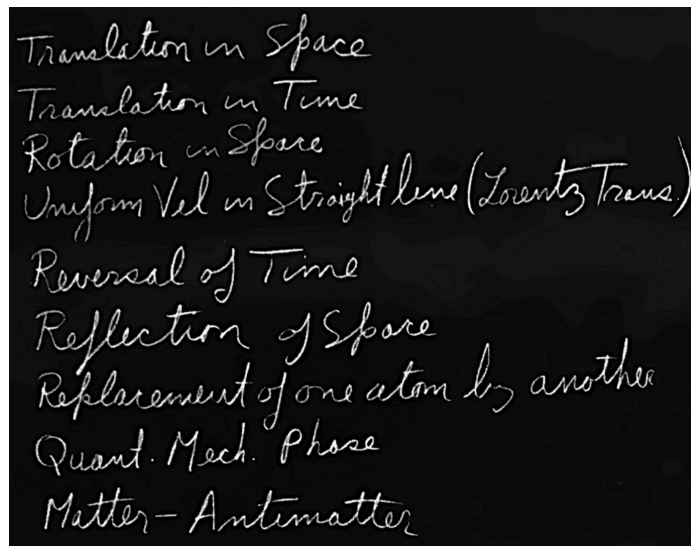 Translation in Space
Translation in Time
Rotation in Space
Uniform Vel in Straight line (Lorentz Trans.)
Reversal of Time
Reflection of Space
Replacement of one atom by another
Quant. Mech. Phase
Matter – Antimatter